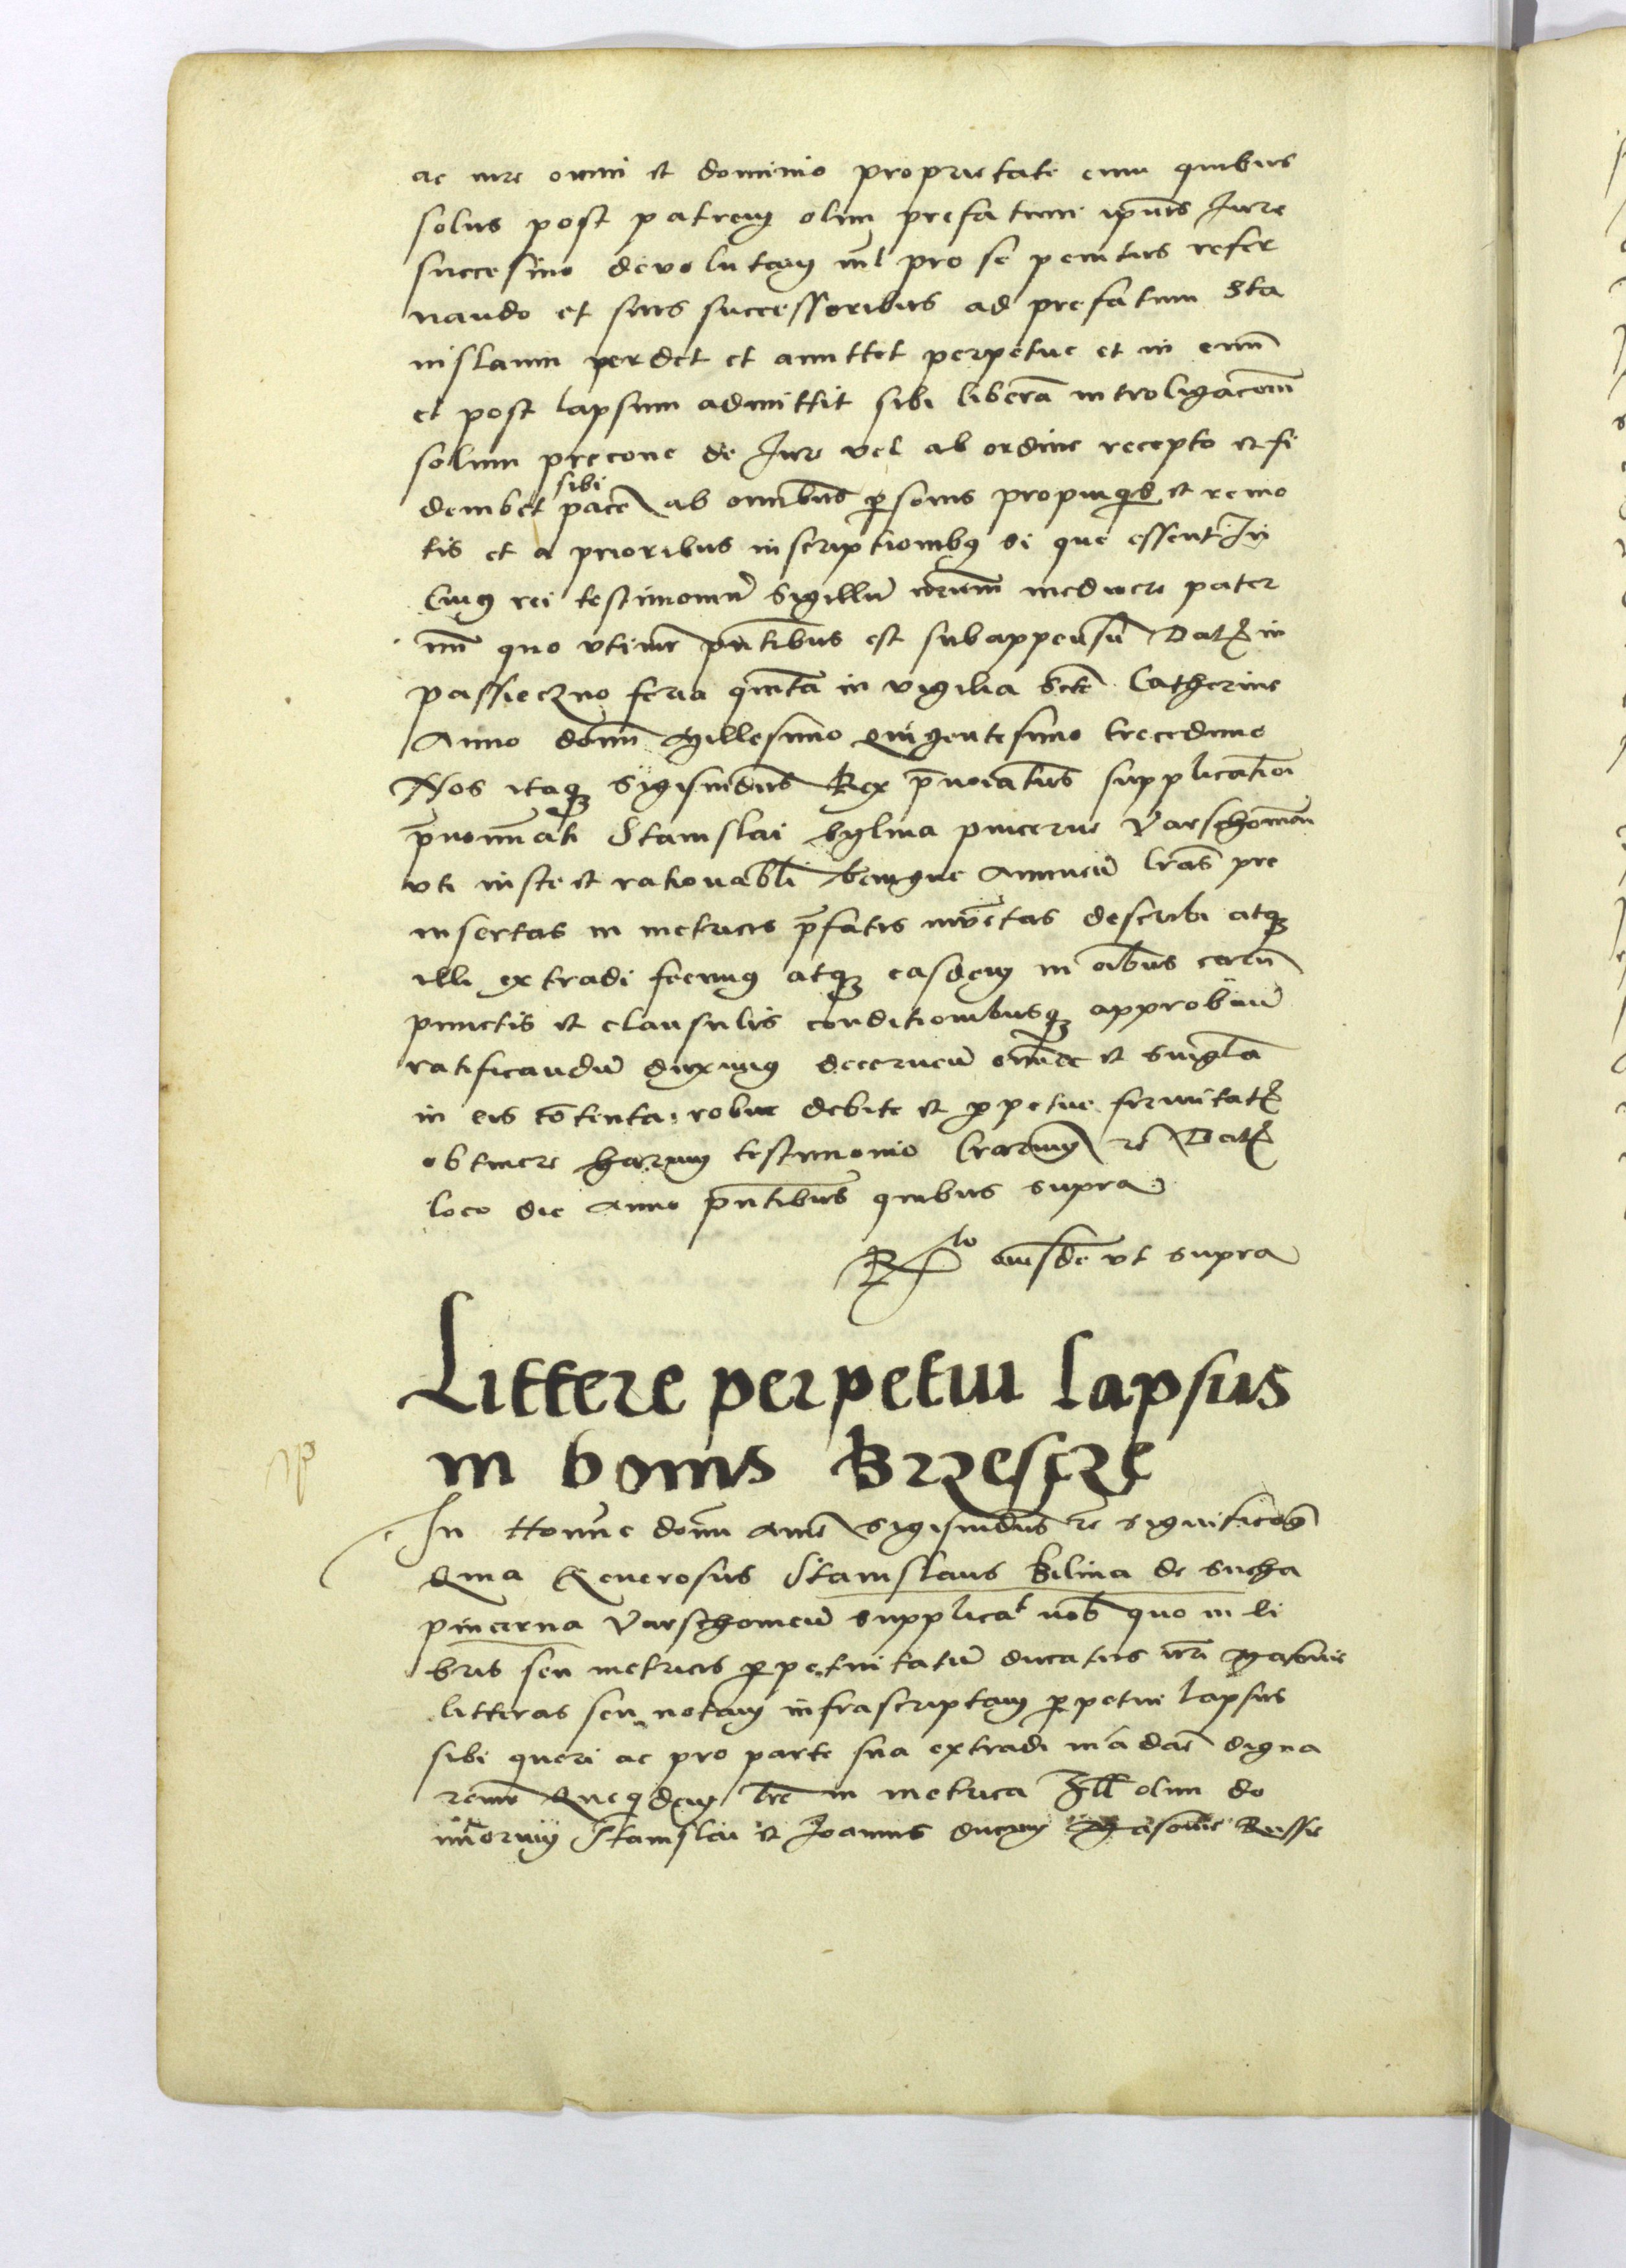 ac iure omni et dominio proprietate cum quibus
solus post patrem olim prefatum ipius Jure
succesiuo devolutam nil pro se penitus reser
uando et suis successoribus ad prefatum Sta
nislaum perdet et amittet perpetue et in eum
et post lapsum admittit sibi liberā introligacōem
solum precone de Jure vel ab ordine recepto et fi
deiubet sibi pacē ab omibus personis propinqs et remo
tis et a prioribus inscriptionibq si que essent In
Cuiq rei testimoniū Sigillū nrum mediocre pater
nū quo vtimr pntibus est subappensū Datʒ in
passieczno feria quinta in vigilia Scte Catherine
Anno domi Millesimo Quigentesimo trecedimo
Nos itaqʒ Sigismdus Rex pnoiatus supplicationi
pnominati Stanislai bylina pincerne Varschomien
vti iuste et rationabli benigne Annuen lras pre
insertas in metricis pfatis inuetas describi atqʒ
illi extradi fecimq atqʒ easdem in oibus earū
punctis et clausulis conditionibusqʒ approband
ratificandū duximq decernen omia et singla
in eis cotenta, robur debite et perpetue firmitatʒ
obtinere harum testimonio lrarum rc Datʒ
loco die Anno pntibus quibus supra
Rlo eiusde vt supra
Littere perpetui lapsus
in bonis Brzescze
In Nomie domi Ame Sigismdus rc Significamq
Quia Generosus Stanislaus Bilina de sucha
pincerna Varschomien supplicat nob quo in li
bris seu metricis perpetuitatū ducatus nri Masouie
litteras seu notam infrascriptam perpetui lapsus
sibi queri ac pro parte sua extradi madare digna
remr Quequidem lre in metrica Ill olim do
minorum Stanislai et Joannis ducum Masouie Russie